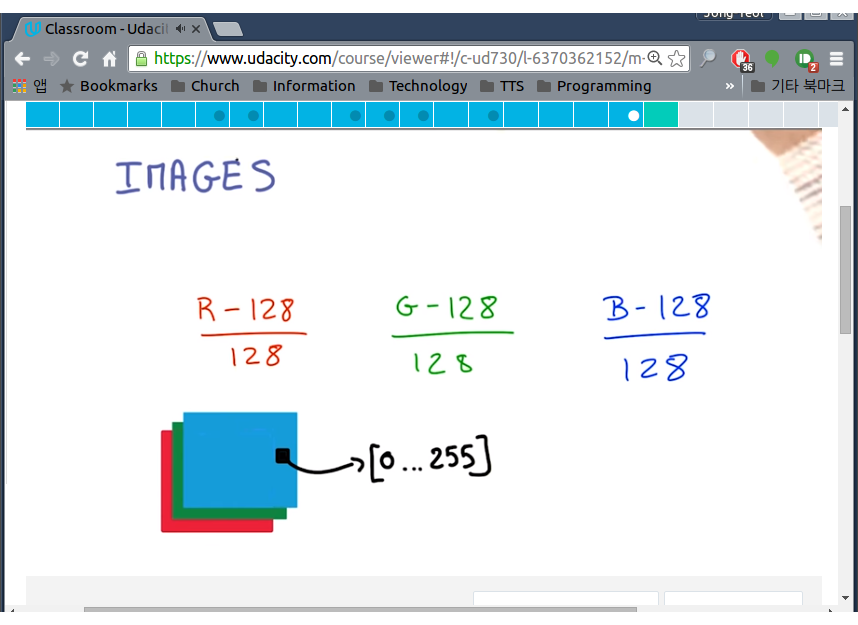 Jong Yeol
Classroom - Udacil
https://www.udacity.com/course/viewer#!/c-ud730/l-6370362152/m-
36
2
앱 Bookmarks Church Information Technology TTS Programming » 기타 북마크
IMAGES
R - 128 G - 128 B - 128
128 128 128
[0 ... 255]